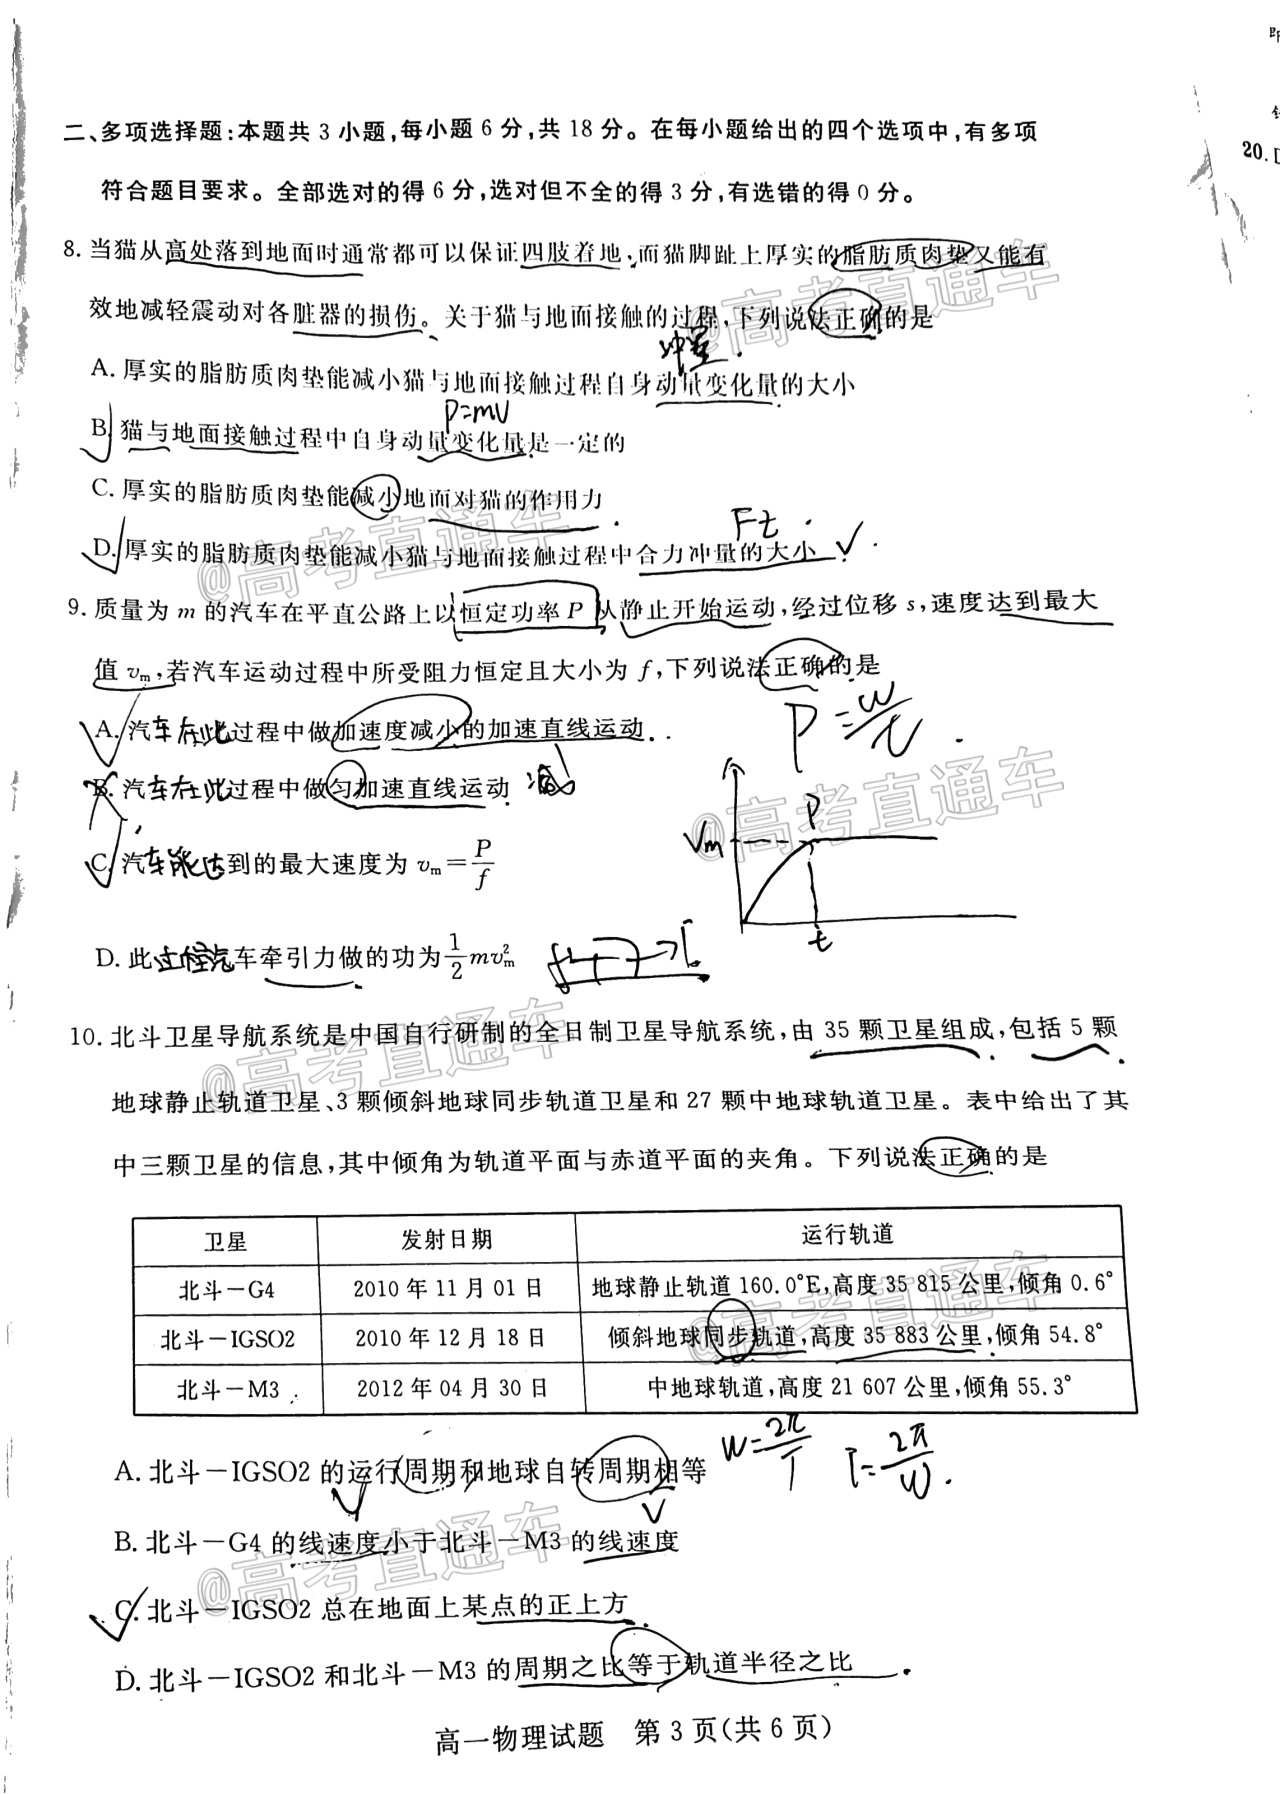 二、多项选择题:本题共 3 小题,每小题 6 分,共 18 分。在每小题给出的四个选项中,有多项
20.
符合题目要求。全部选对的得 6 分,选对但不全的得 3 分,有选错的得 0 分。
8. 当猫从高处落到地面时通常都可以保证四肢着地,而猫脚趾上厚实的脂肪质肉垫又能有
效地减轻震动对各脏器的损伤。关于猫与地面接触的过程,下列说法正确的是
@高考直通车
冲量
A. 厚实的脂肪质肉垫能减小猫与地面接触过程自身动量变化量的大小
P=mv
B. 猫与地面接触过程中自身动量变化量是一定的
C. 厚实的脂肪质肉垫能减小地面对猫的作用力
@高考直通车
Ft
D. 厚实的脂肪质肉垫能减小猫与地面接触过程中合力冲量的大小
9. 质量为 m 的汽车在平直公路上以恒定功率 P 从静止开始运动,经过位移 s,速度达到最大
值 vm,若汽车运动过程中所受阻力恒定且大小为 f,下列说法正确的是
P=W/t
A. 汽车在此过程中做加速度减小的加速直线运动
B. 汽车在此过程中做匀加速直线运动 减
@高考直通车
P
Vm
C. 汽车能达到的最大速度为 vm=P/f
t
D. 此过程汽车牵引力做的功为1/2mvm²
@高考直通车
10. 北斗卫星导航系统是中国自行研制的全日制卫星导航系统,由 35 颗卫星组成,包括 5 颗
地球静止轨道卫星、3 颗倾斜地球同步轨道卫星和 27 颗中地球轨道卫星。表中给出了其
中三颗卫星的信息,其中倾角为轨道平面与赤道平面的夹角。下列说法正确的是
卫星 发射日期 运行轨道
北斗-G4 2010 年 11 月 01 日 地球静止轨道 160.0°E,高度 35 815 公里,倾角 0.6°
北斗-IGSO2 2010 年 12 月 18 日 倾斜地球同步轨道,高度 35 883 公里,倾角 54.8°
@高考直通车
北斗-M3 2012 年 04 月 30 日 中地球轨道,高度 21 607 公里,倾角 55.3°
W=2π/T T=2π/W
A. 北斗-IGSO2 的运行周期和地球自转周期相等
B. 北斗-G4 的线速度小于北斗-M3 的线速度
@高考直通车
C. 北斗-IGSO2 总在地面上某点的正上方
D. 北斗-IGSO2 和北斗-M3 的周期之比等于轨道半径之比
高一物理试题 第 3 页(共 6 页)